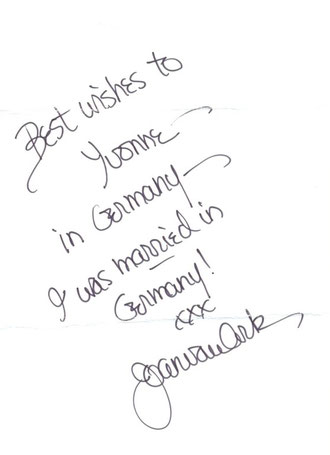 Best wishes to
Yvonne
in Germany
I was married in
Germany!
xxx
Joan van Ark